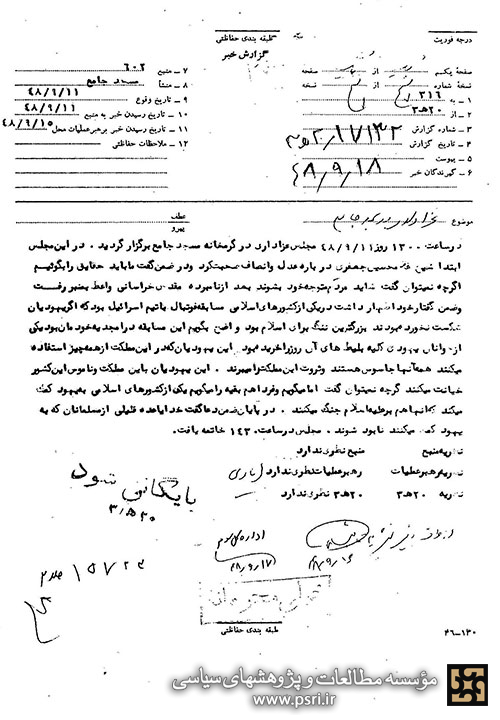 درجه فوریت
طبقه بندی حفاظتی
گزارش خبر
صفحه یکم از صفحه
نسخه شماره از نسخه
۱ - به ۳۱۶
۲ - از ۲۰ ه‍ ۳
۳ - شماره گزارش ۱۷۱۳۲/۲۰ه‍۳
۴ - تاریخ گزارش ۴۸/۹/۱۸
۵ - پیوست
۶ - گیرندگان خبر
۷ - منبع ۶۰۲
۸ - منشأ مسجد جامع
۹ - تاریخ وقوع ۴۸/۹/۱۱
۱۰ - تاریخ رسیدن خبر به منبع ۴۸/۹/۱۱
۱۱ - تاریخ رسیدن خبر برهبر عملیات محل ۴۸/۹/۱۵
۱۲ - ملاحظات حفاظتی
موضوع
عطف
پیرو
در ساعت ۱۳۰۰ روز ۴۸/۹/۱۱ مجلس عزاداری در گرمخانه مسجد جامع برگزار گردید . در این مجلس
ابتدا شیخ جعفری در باره عدل و انصاف صحبت کرد و در ضمن گفت ما باید حقایق را بگوئیم
اگرچه نمیتوان گفت شاید مردم متوجه خود بشوند بعد از نامبرده مقدس خراسانی واعظ بمنبر رفت
و ضمن گفتار خود اظهار داشت در یکی از کشورهای اسلامی مسابقه فوتبال با تیم اسرائیل بود که اگر یهودیان
شکست نخورده بودند بزرگترین ننگ برای اسلام بود و واضح بگویم این مسابقه در امجدیه خودمان بود یکی
از یهودی کلیه بلیط های آن روز را خریده بود . این یهودیان که در این مملکت از همه چیز استفاده
میکنند همه آنها جاسوس هستند و ثروت این مملکت را میبرند . این یهودیان باین مملکت و ناموس این کشور
خیانت میکنند گرچه نمیتوان گفت اما میگویم و فردا هم بقیه را میگویم یکی از کشورهای اسلامی به یهود کمک
میکند که آنها هم بر علیه اسلام جنگ میکنند . در پایان ضمن دعا گفت خدایا عده قلیلی از مسلمانان که به
یهود کمک میکنند نابود شوند . مجلس در ساعت ۱۴۳۰ خاتمه یافت.
نظریه منبع منبع نظری ندارد
نظریه رهبر عملیات رهبر عملیات نظری ندارد
نظریه ۲۰ ه‍ ۳ ۲۰ ه‍ ۳ نظری ندارد
بایگانی شود
۲۰ه‍۳
اداره کل سوم
۴۸/۹/۱۷
۱۵۷۲۲
خیلی محرمانه
طبقه بندی حفاظتی
۴۶-۱۳۰
مؤسسه مطالعات و پژوهشهای سیاسی
www.psri.ir